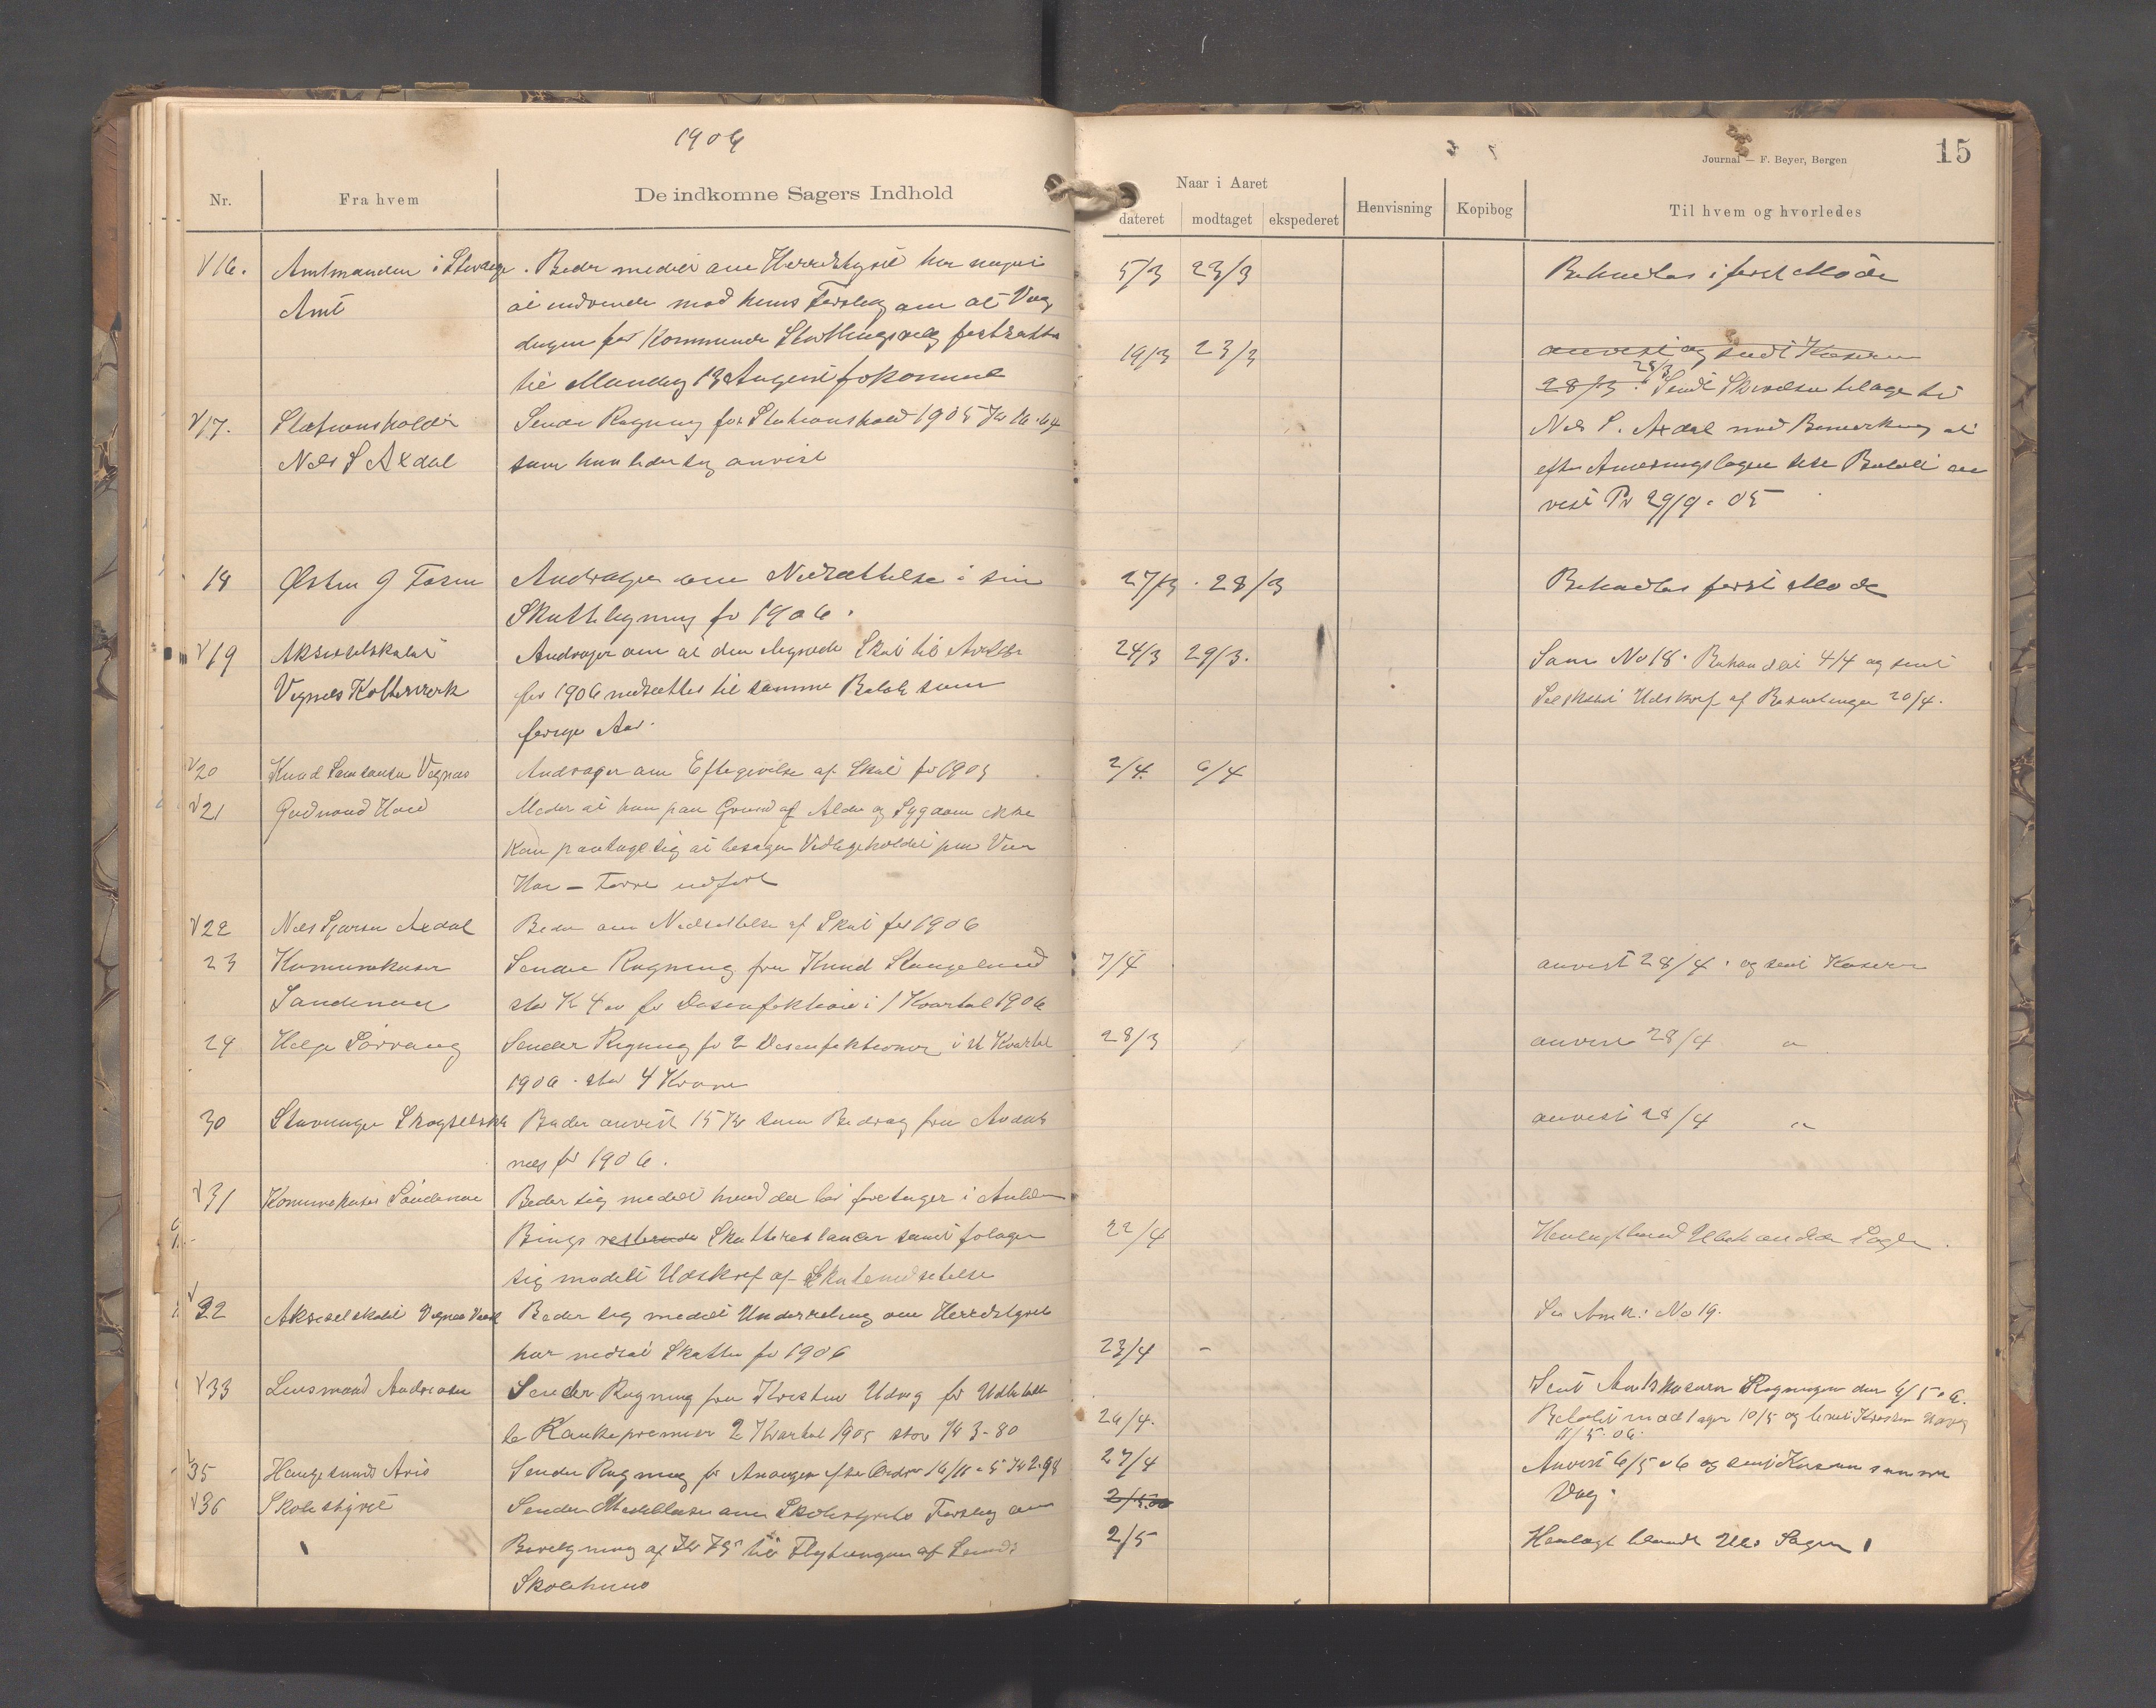 1906
Nr.
Fra hvem
De indkomne Sagers Indhold
V16.
Amtmanden i Stavanger
Amt
Beder meddelt om Herredstyret har noget
at indvende mod hans Forslag om at Vag
dagen for Kommende Storthingsvalg fastsættes
til Mandag 13 August førkommende
V17.
Stationsholder
Nils S Axdal
Sender Regning for Stationshold 1905 Kr 16.64
som han beder sig anvist
18
Østen J Fosen
Andrager om Nedsættelse i sin
Skatteligning for 1906.
V19
Aktieselskabet
Vigsnæs Kobberverk
Andrager om at den lignede Skat til
for 1906 nedsættes til samme Beløb som
forrige Aar.
V20
Knud Samsonsen Vigsnes
Andrager om Eftergivelse af Skat for 1905
V21
Gudmund
Melder at han paa Grund af Alder og Sygdom ikke
kan paatage sig at besørge Vedligeholdet paa Veien
udført
V22
Nils Axdal
Beder om Nedsættelse af Skat for 1906
23
Kommunekasser
Sandenæs
Sender Regning fra Knud Stangeland
stor K 4 for Desinfektion i 1 Kvartal 1906
24
Helge Sørvaag
Sender Regning for 2 Desinfektioner i 1st Kvartal
1906. stor 4 Kroner
30
Stavanger Skogselskab
Beder anvist 15 Kr som Bidrag fra Avalds
nes for 1906.
V31
Kommunekasser
Beder sig meddelt hvad der bør foretages i Anledn
restancer samt
sig meddelt Udskrift af Skatenedsettelse
V32
Akseselskabet Vigsnes Verk
Beder sig meddelt Underretning om Herredstyret
har nedsat Skatten for 1906
V33
Lensmand Andreasen
Sender Regning fra Kristen Udvag for Udbetalte
premier 2 Kvartal 1905 stor K 3-80
35
Haugesunds Avis
Sender Regning for Anonger efter Ordre 16/11-5 Kr 2.98
V36
Skolestyret
Sender Meddelelse om Skolestyrets Forslag om
Bevilgning af Kr 75 til Flytningen af
Skolehuus
15
Journal — F. Beyer, Bergen
Naar i Aaret
dateret
modtaget
ekspederet
Henvisning
Kopibog
Til hvem og hvorledes
5/3 23/3
Behandles i først Møde
19/3 23/3
anvist og sendt Kasseren
28/3. 28/3 Sendt Skrivelsen tilbage til
Nils S. Axdal med Bemerkning at
efter Anvisningslogen dette Beløb an
vist Pr 29/9. 05
27/3 28/3
Behandles først Møde
24/3 29/3.
Som No 18. Behandlet 4/4 og sendt
Selskabet Udskrift af Beslutningen 20/4.
2/4. 6/4
7/4
anvist 28/4. og sent Kasseren
28/3
anvist 28/4 "
anvist 28/4 "
22/4
Henlagt bland Ubehandlede Sager.
Se Anm: No 19.
23/4 -
Sent Amtskasseren Regningen den 4/5 06.
26/4.
Beløbet modtaget 10/5 og Kristen Udvag
11/5. 06.
27/4
Anvist 6/5 06 og sent Kasseren samme
Dag.
2/5.06
2/5
Henlagt blandt Ub. Sager